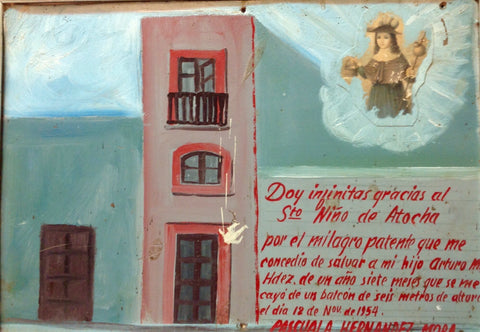 Doy infinitas gracias al
Sto Niño de Atocha
por el milagro patente que me
concedio de salvar a mi hijo Arturo M.
Hdez. de un año siete meses que se me
cayó de un balcon de seis metros de altura
el dia 18 de Nov. de 1954.
PASCUALA HERNANDEZ MORA